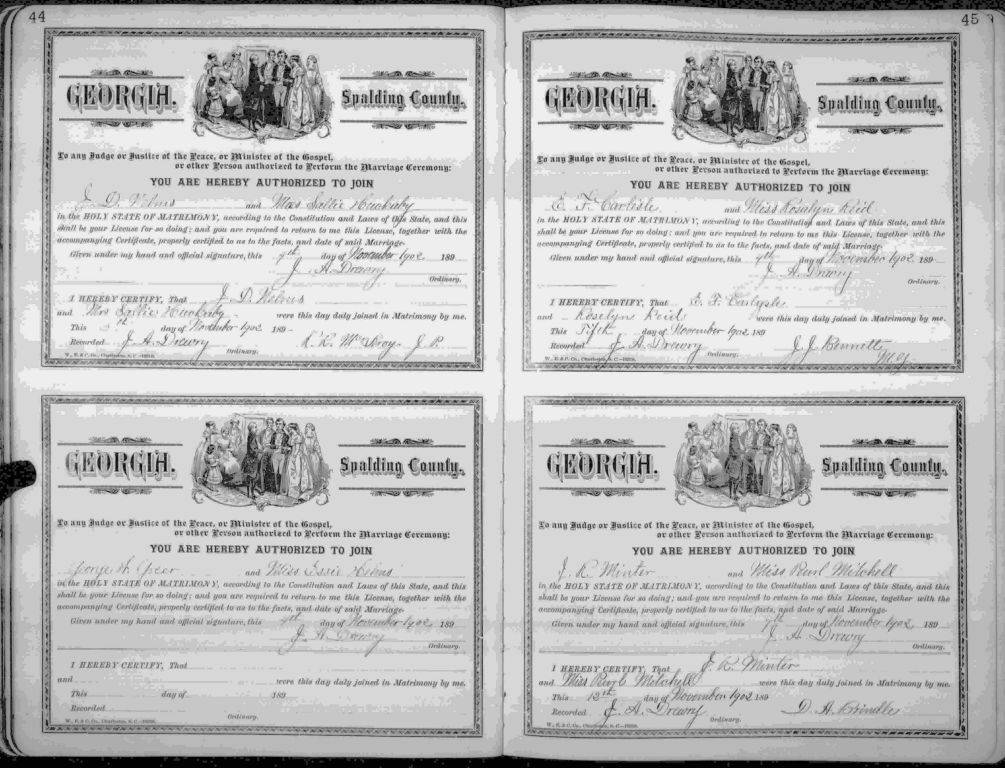 44
GEORGIA.
Spalding County.
To any Judge or Justice of the Peace, or Minister of the Gospel,
or other Person authorized to Perform the Marriage Ceremony:
YOU ARE HEREBY AUTHORIZED TO JOIN
J. D. and Mrs Sallie Huckaby
in the HOLY STATE OF MATRIMONY, according to the Constitution and Laws of this State, and this
shall be your License for so doing; and you are required to return to me this License, together with the
accompanying Certificate, properly certified to as to the facts, and date of said Marriage.
Given under my hand and official signature, this day of November 1902 189
J. A. Drewry
Ordinary.
I HEREBY CERTIFY, That J. D.
and Mrs Sallie Huckaby were this day duly joined in Matrimony by me.
This day of November 1902 189
Recorded J. A. Drewry J. P.
Ordinary.
GEORGIA.
Spalding County.
To any Judge or Justice of the Peace, or Minister of the Gospel,
or other Person authorized to Perform the Marriage Ceremony:
YOU ARE HEREBY AUTHORIZED TO JOIN
George and Miss Essie
in the HOLY STATE OF MATRIMONY, according to the Constitution and Laws of this State, and this
shall be your License for so doing; and you are required to return to me this License, together with the
accompanying Certificate, properly certified to as to the facts, and date of said Marriage.
Given under my hand and official signature, this day of November 1902 189
J. A. Drewry
Ordinary.
I HEREBY CERTIFY, That
and were this day duly joined in Matrimony by me.
This day of 189
Recorded
Ordinary.
45
GEORGIA.
Spalding County.
To any Judge or Justice of the Peace, or Minister of the Gospel,
or other Person authorized to Perform the Marriage Ceremony:
YOU ARE HEREBY AUTHORIZED TO JOIN
E. F. Carlisle and Miss Rosalyn Reid
in the HOLY STATE OF MATRIMONY, according to the Constitution and Laws of this State, and this
shall be your License for so doing; and you are required to return to me this License, together with the
accompanying Certificate, properly certified to as to the facts, and date of said Marriage.
Given under my hand and official signature, this day of November 1902 189
J. A. Drewry
Ordinary.
I HEREBY CERTIFY, That E. F. Carlysle
and Roselyn Reid were this day duly joined in Matrimony by me.
This Fifth day of November 1902 189
Recorded J. A. Drewry J. J. Bennett
Ordinary. M.G.
GEORGIA.
Spalding County.
To any Judge or Justice of the Peace, or Minister of the Gospel,
or other Person authorized to Perform the Marriage Ceremony:
YOU ARE HEREBY AUTHORIZED TO JOIN
J. R. Minter and Miss Pearl Mitchell
in the HOLY STATE OF MATRIMONY, according to the Constitution and Laws of this State, and this
shall be your License for so doing; and you are required to return to me this License, together with the
accompanying Certificate, properly certified to as to the facts, and date of said Marriage.
Given under my hand and official signature, this day of November 1902 189
J. A. Drewry
Ordinary.
I HEREBY CERTIFY, That J. R. Minter
and Miss Mitchell were this day duly joined in Matrimony by me.
This 12th day of November 1902 189
Recorded J. A. Drewry D. A. Brindle
Ordinary.